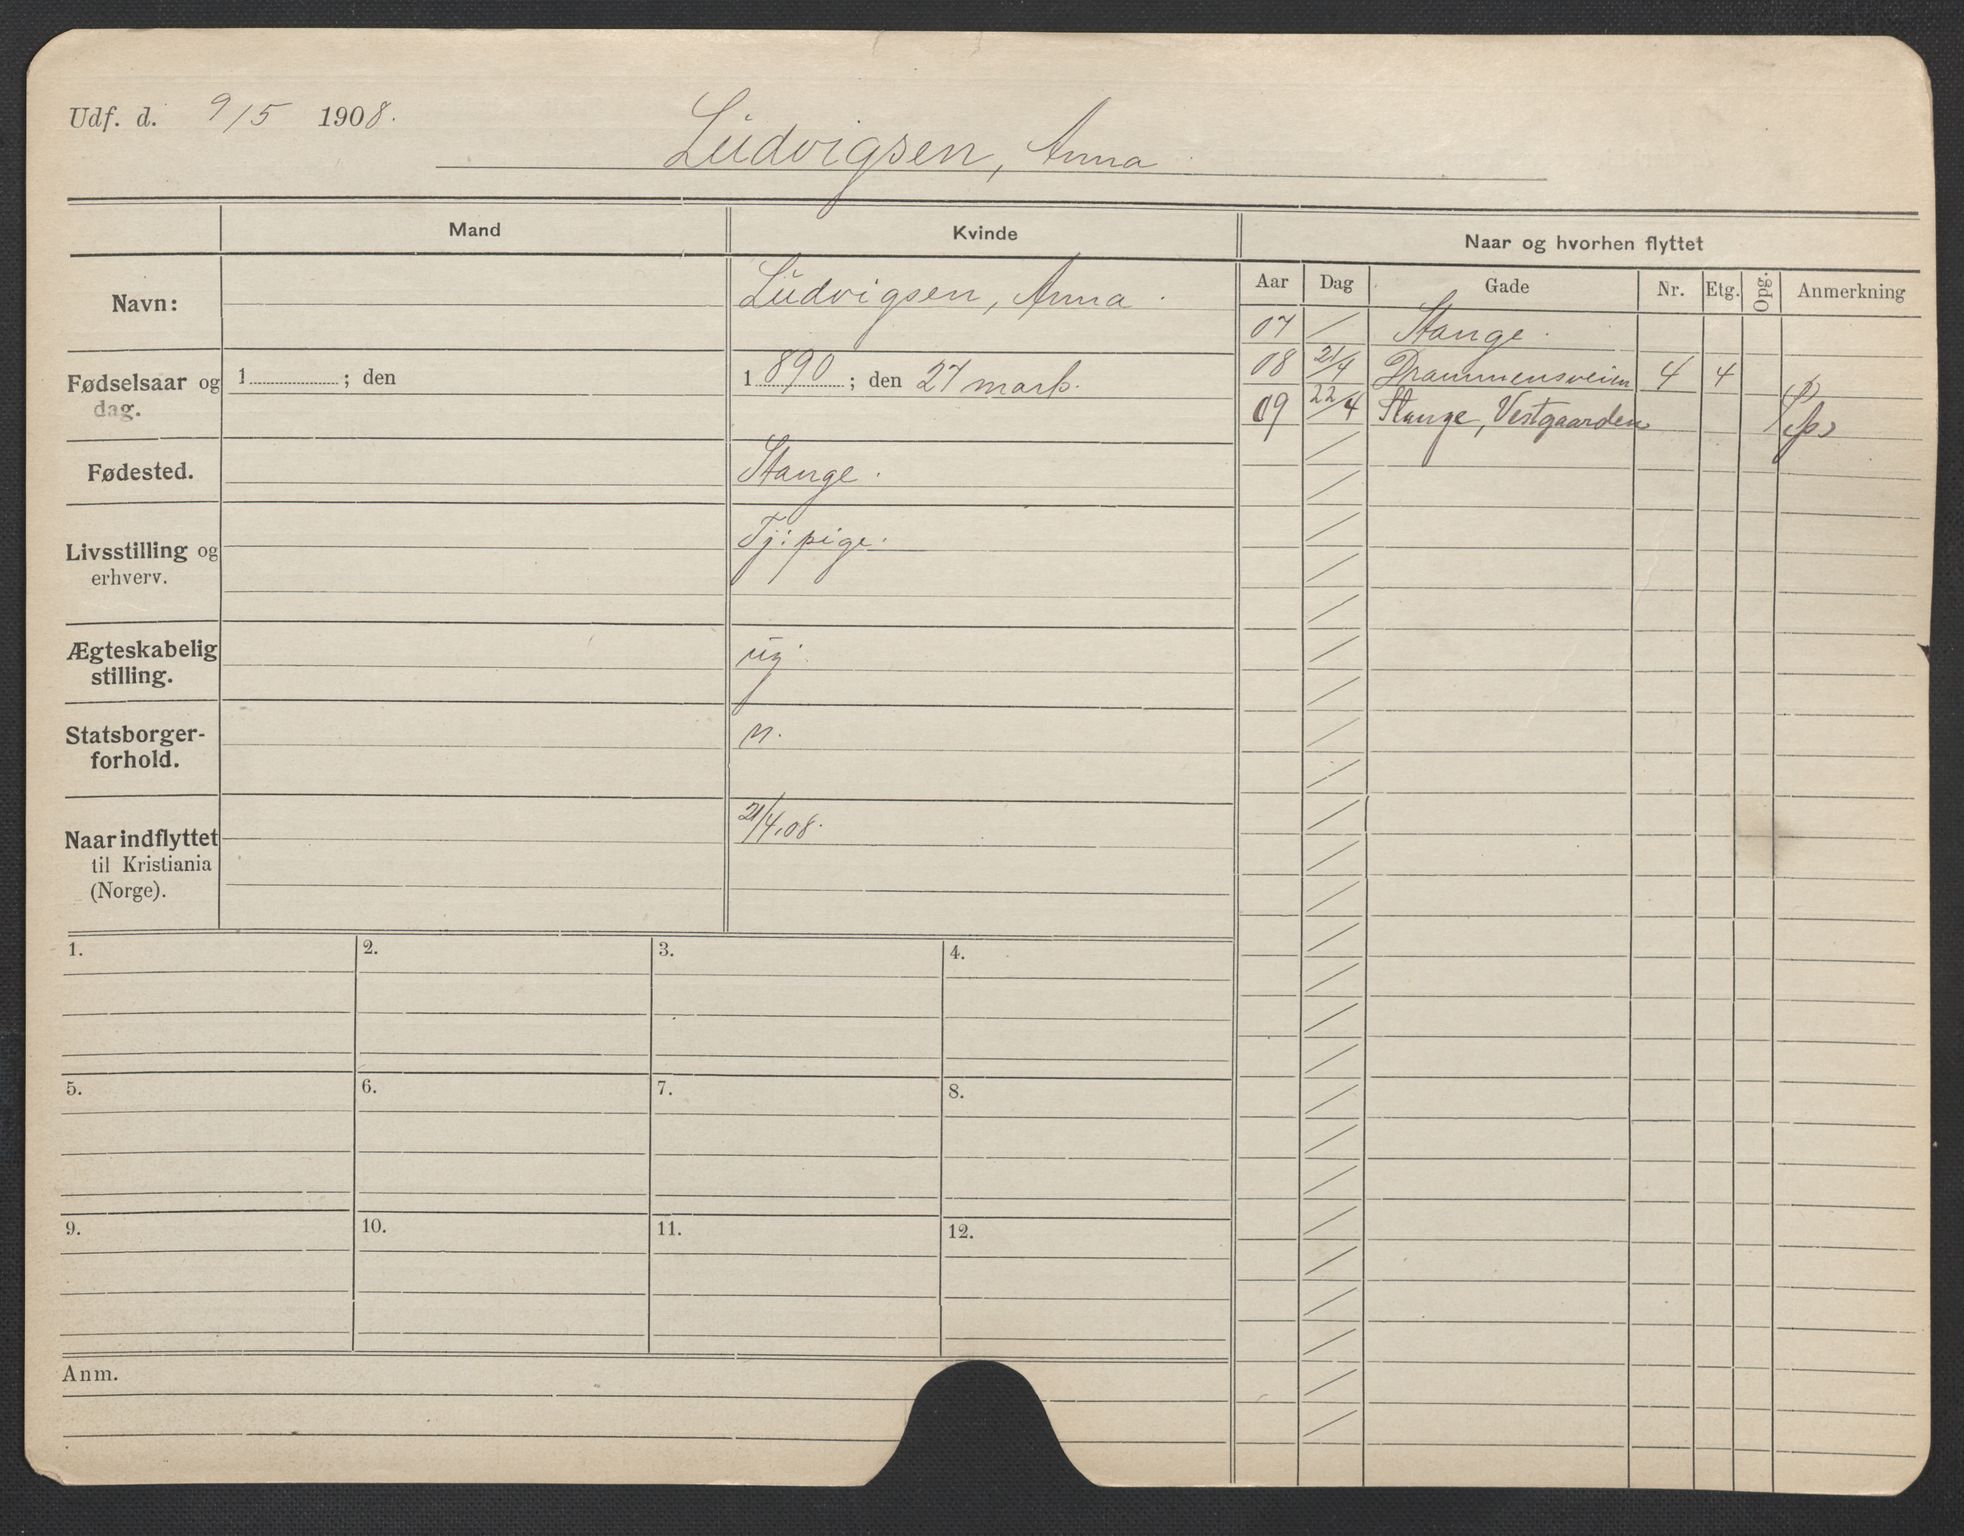 Udf. d. 9/5 1908.
Lüdvigsen, Anna
Mand
Kvinde
Naar og hvorhen flyttet
Aar Dag Gade Nr. Etg. Opg. Anmerkning
Navn:
Lüdvigsen, Anna
Fødselsaar og
dag.
1 ; den
1890 ; den 27 marts.
Fødested.
Stange.
Livsstilling og
erhverv.
Tj: pige.
Ægteskabelig
stilling.
ug.
Statsborger-
forhold.
n.
Naar indflyttet
til Kristiania
(Norge).
21/4.08.
07 / Stange.
08 21/4 Drammensveien 4 4
09 22/4 Stange, Vestgaarden
1. 2. 3. 4.
5. 6. 7. 8.
9. 10. 11. 12.
Anm.